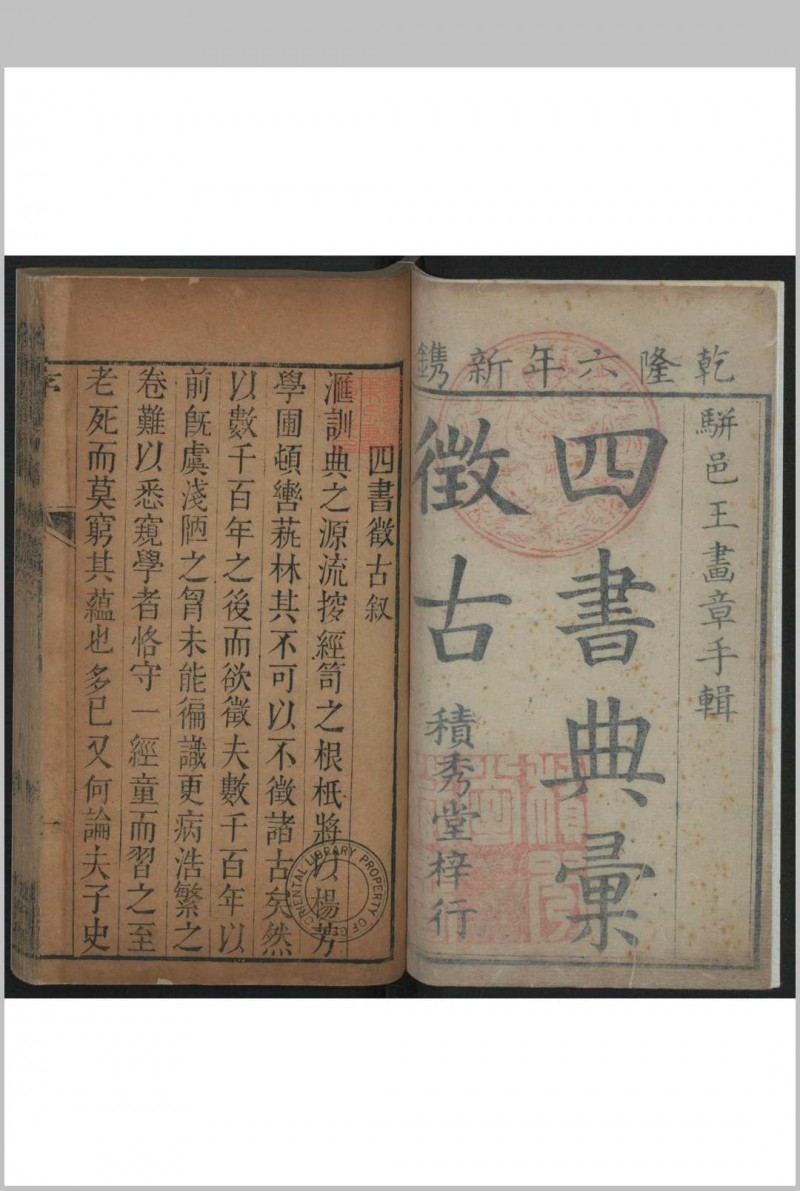 乾隆六年新鐫
駢邑王畵章手輯
四書典彙
徵古
積秀堂梓行
四書徵古叙
滙訓典之源流挖經笥之根柢將以楊芳
學圃頓轡蓺林其不可以不徵諸古矣然
以數千百年之後而欲徵夫數千百年以
前旣虞淺陋之胷未能徧識更病浩繁之
卷難以悉窺學者恪守一經童而習之至
老死而莫窮其蘊也多已又何論夫子史
序
一
ORIENTAL LIBRARY PROPERTY OF